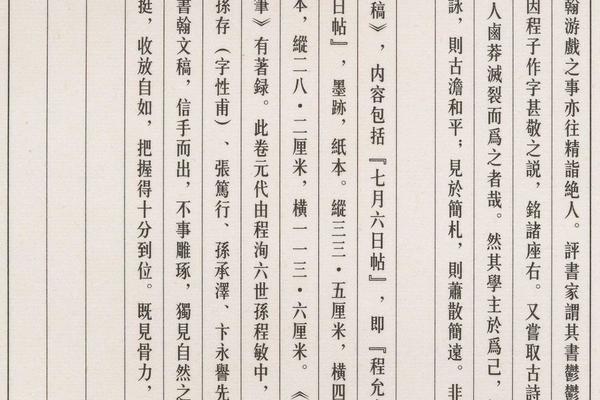 翰游戲之事亦往精詣絶人。評書家謂其書鬱鬱
因程子作字甚敬之説，銘諸座右。又嘗取古詩
人鹵莽滅裂而爲之者哉。然其學主於爲己，
詠，則古澹和平；見於簡札，則蕭散簡遠。非
稿》，内容包括『七月六日帖』，即『程允
日帖』，墨跡，紙本。縱三三·五厘米，橫四
本，縱二八·二厘米，橫一一三·六厘米。《
筆》有著録。此卷元代由程洵六世孫程敏中，
孫存（字性甫）、張篤行、孫承澤、卞永譽先
書翰文稿，信手而出，不事雕琢，獨見自然之
挺，收放自如，把握得十分到位。既見骨力，